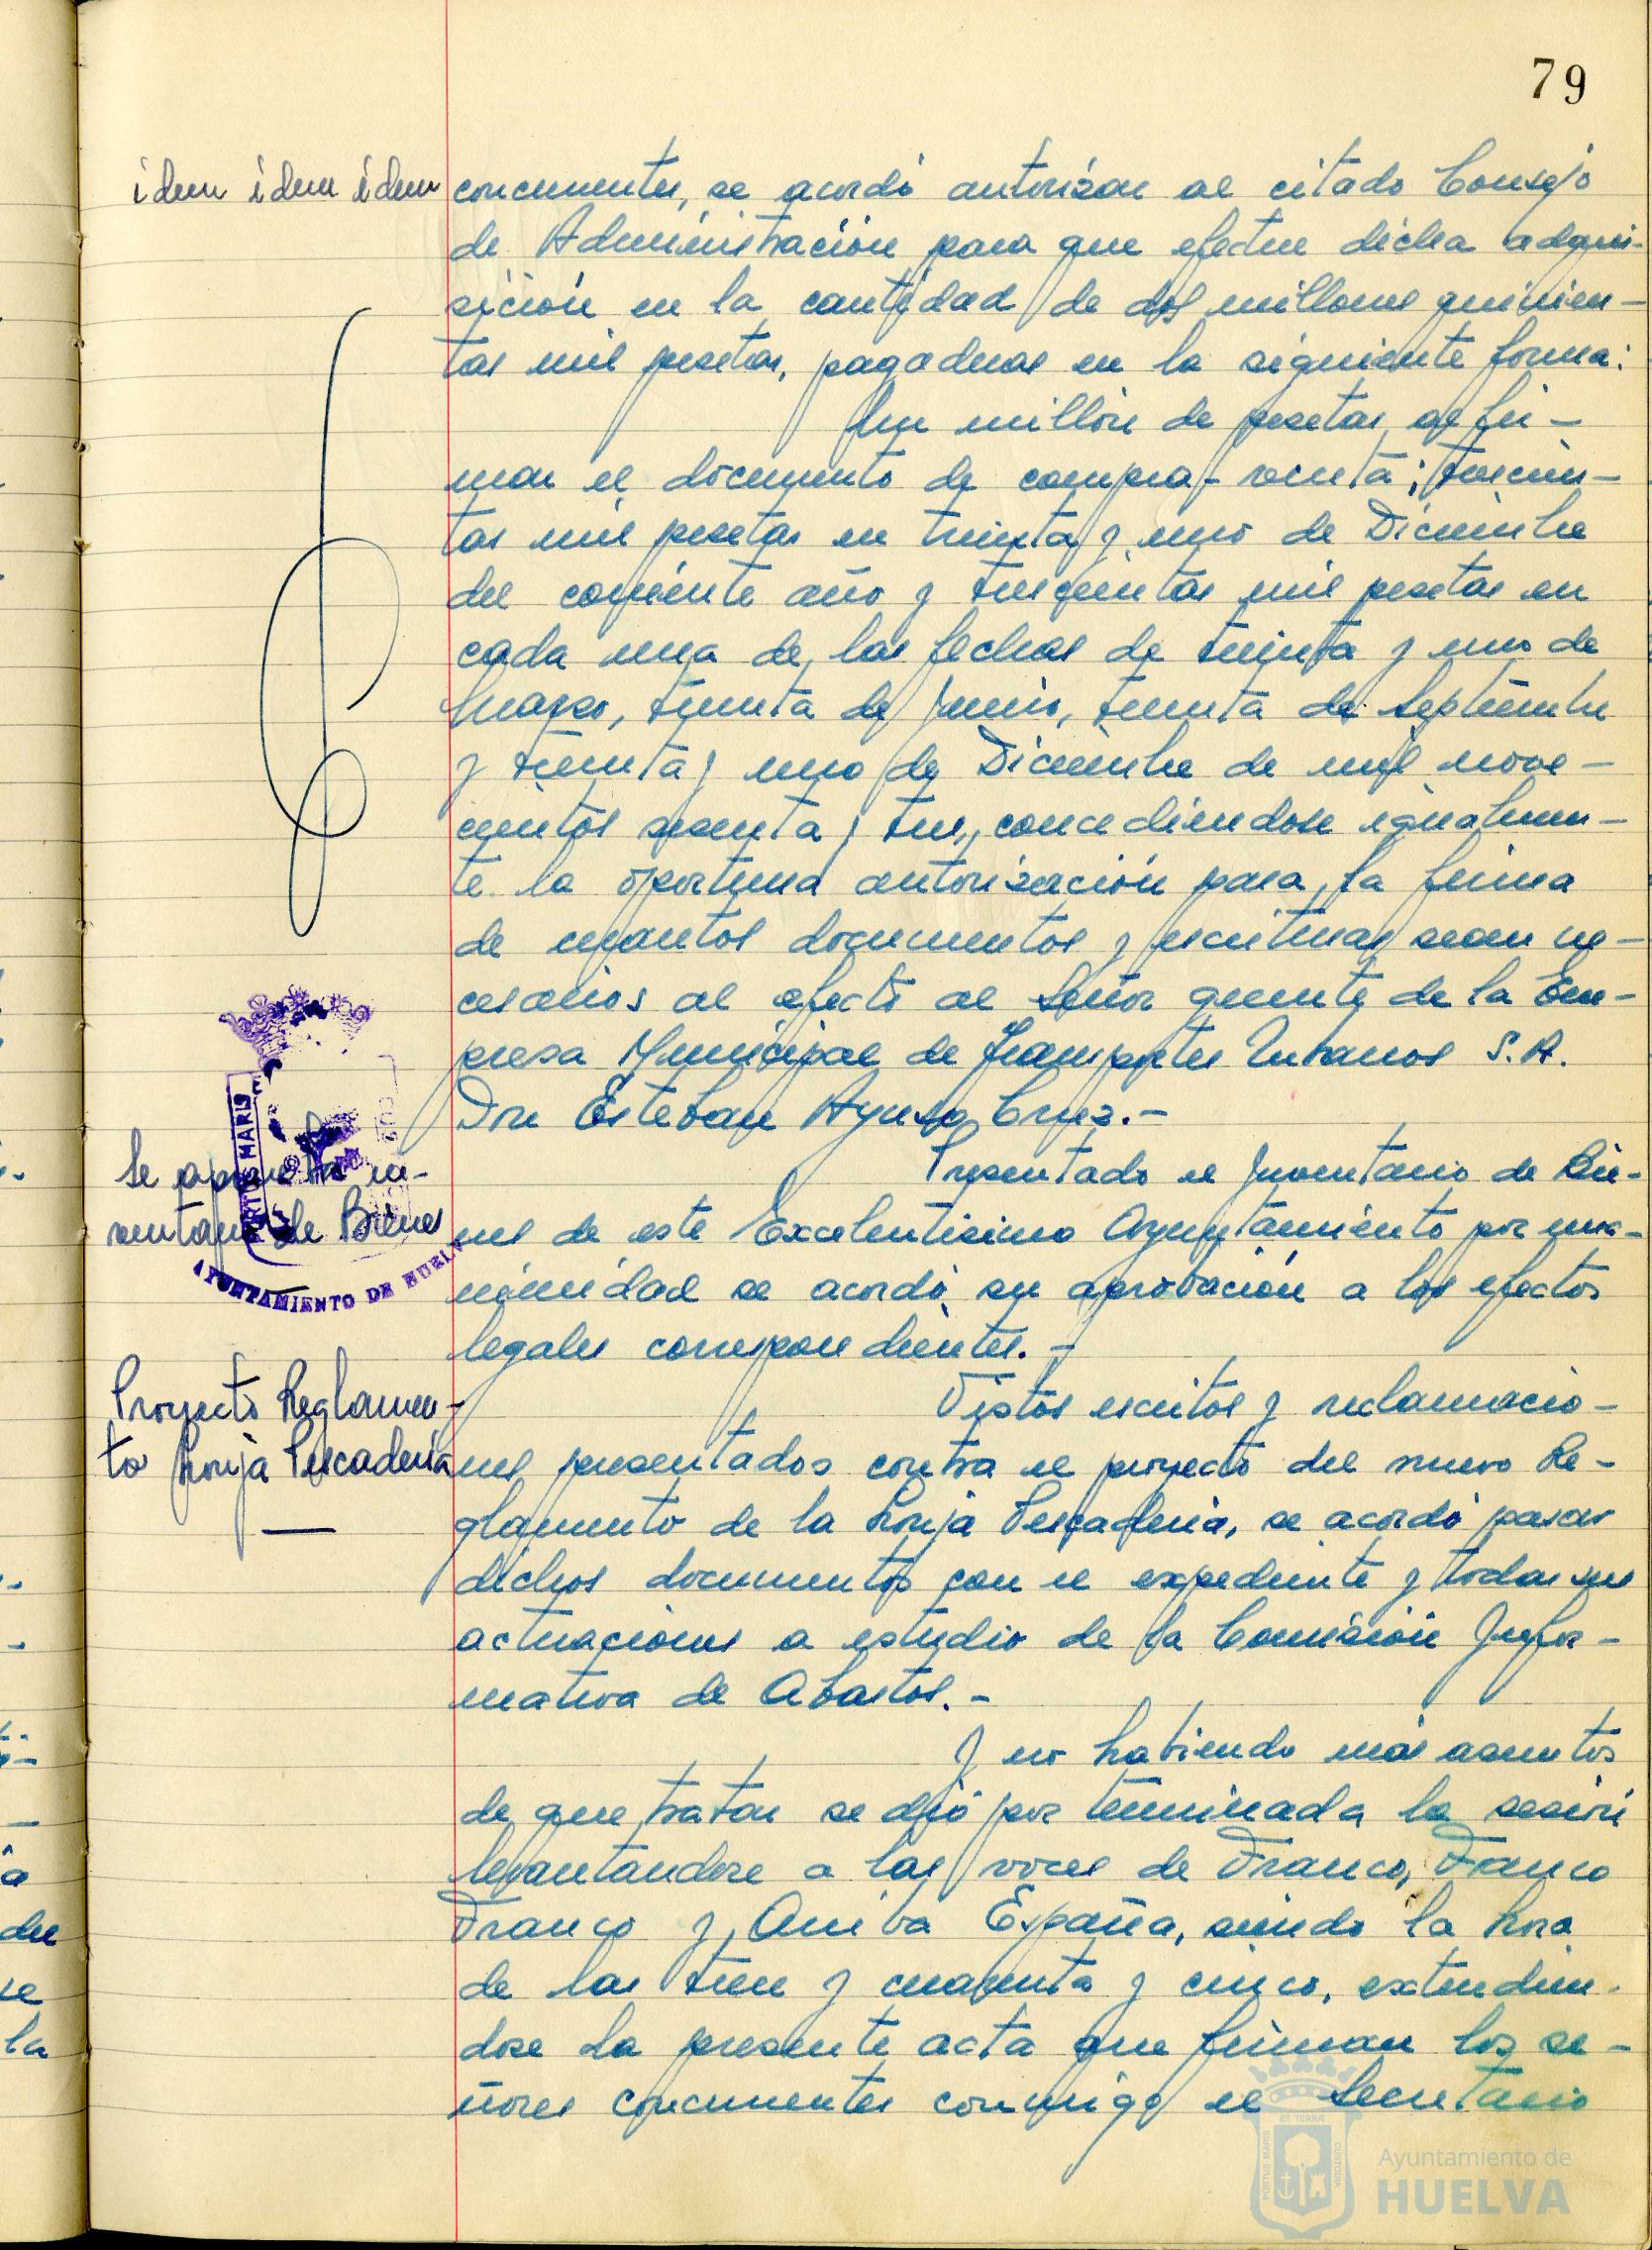 79
idem idem idem
concurrentes, se acordó autorizar al citado Consejo
de Administración para que efectue dicha adqui-
sición en la cantidad de dos millones quinien-
tas mil pesetas, pagaderas en la siguiente forma:
Un millón de pesetas al fir-
mar el documento de compra-venta; trescien-
tas mil pesetas en treinta y uno de Diciembre
del corriente año y trescientas mil pesetas en
cada una de las fechas de treinta y uno de
Marzo, treinta de Junio, treinta de Septiembre
y treinta y uno de Diciembre de mil nove-
cientos sesenta y tres, concediendose igualmen-
te la oportuna autorización para la firma
de cuantos documentos y escrituras sean ne-
cesarios al efecto al Señor gerente de la Em-
presa Municipal de Transportes Urbanos S.A.
Don Esteban Ayuso Cruz.-
Se aprueba in-
ventario de Bienes
Presentado el Inventario de Bie-
nes de este Excelentisimo Ayuntamiento por una-
nimidad se acordó su aprobación a los efectos
legales correspondientes.-
PORTUS MARIS
CUSTODIA
AYUNTAMIENTO DE HUELVA
Proyecto Reglamen-
to Lonja Pescaderia
Vistos escritos y reclamacio-
nes presentados contra el proyecto del nuevo Re-
glamento de la Lonja Pescaderia, se acordó pasar
dichos documentos con el expediente y todas sus
actuaciones a estudio de la Comisión Infor-
mativa de Abastos.-
Y no habiendo más asuntos
de que tratar se dió por terminada la sesión
levantandose a las voces de Franco, Franco
Franco y Arriba España, siendo la hora
de las trece y cuarenta y cinco, extendien-
dose la presente acta que firman los se-
ñores concurrentes conmigo el Secretario
ET TERRA
PORTUS MARIS
CUSTODIA
Ayuntamiento de
HUELVA